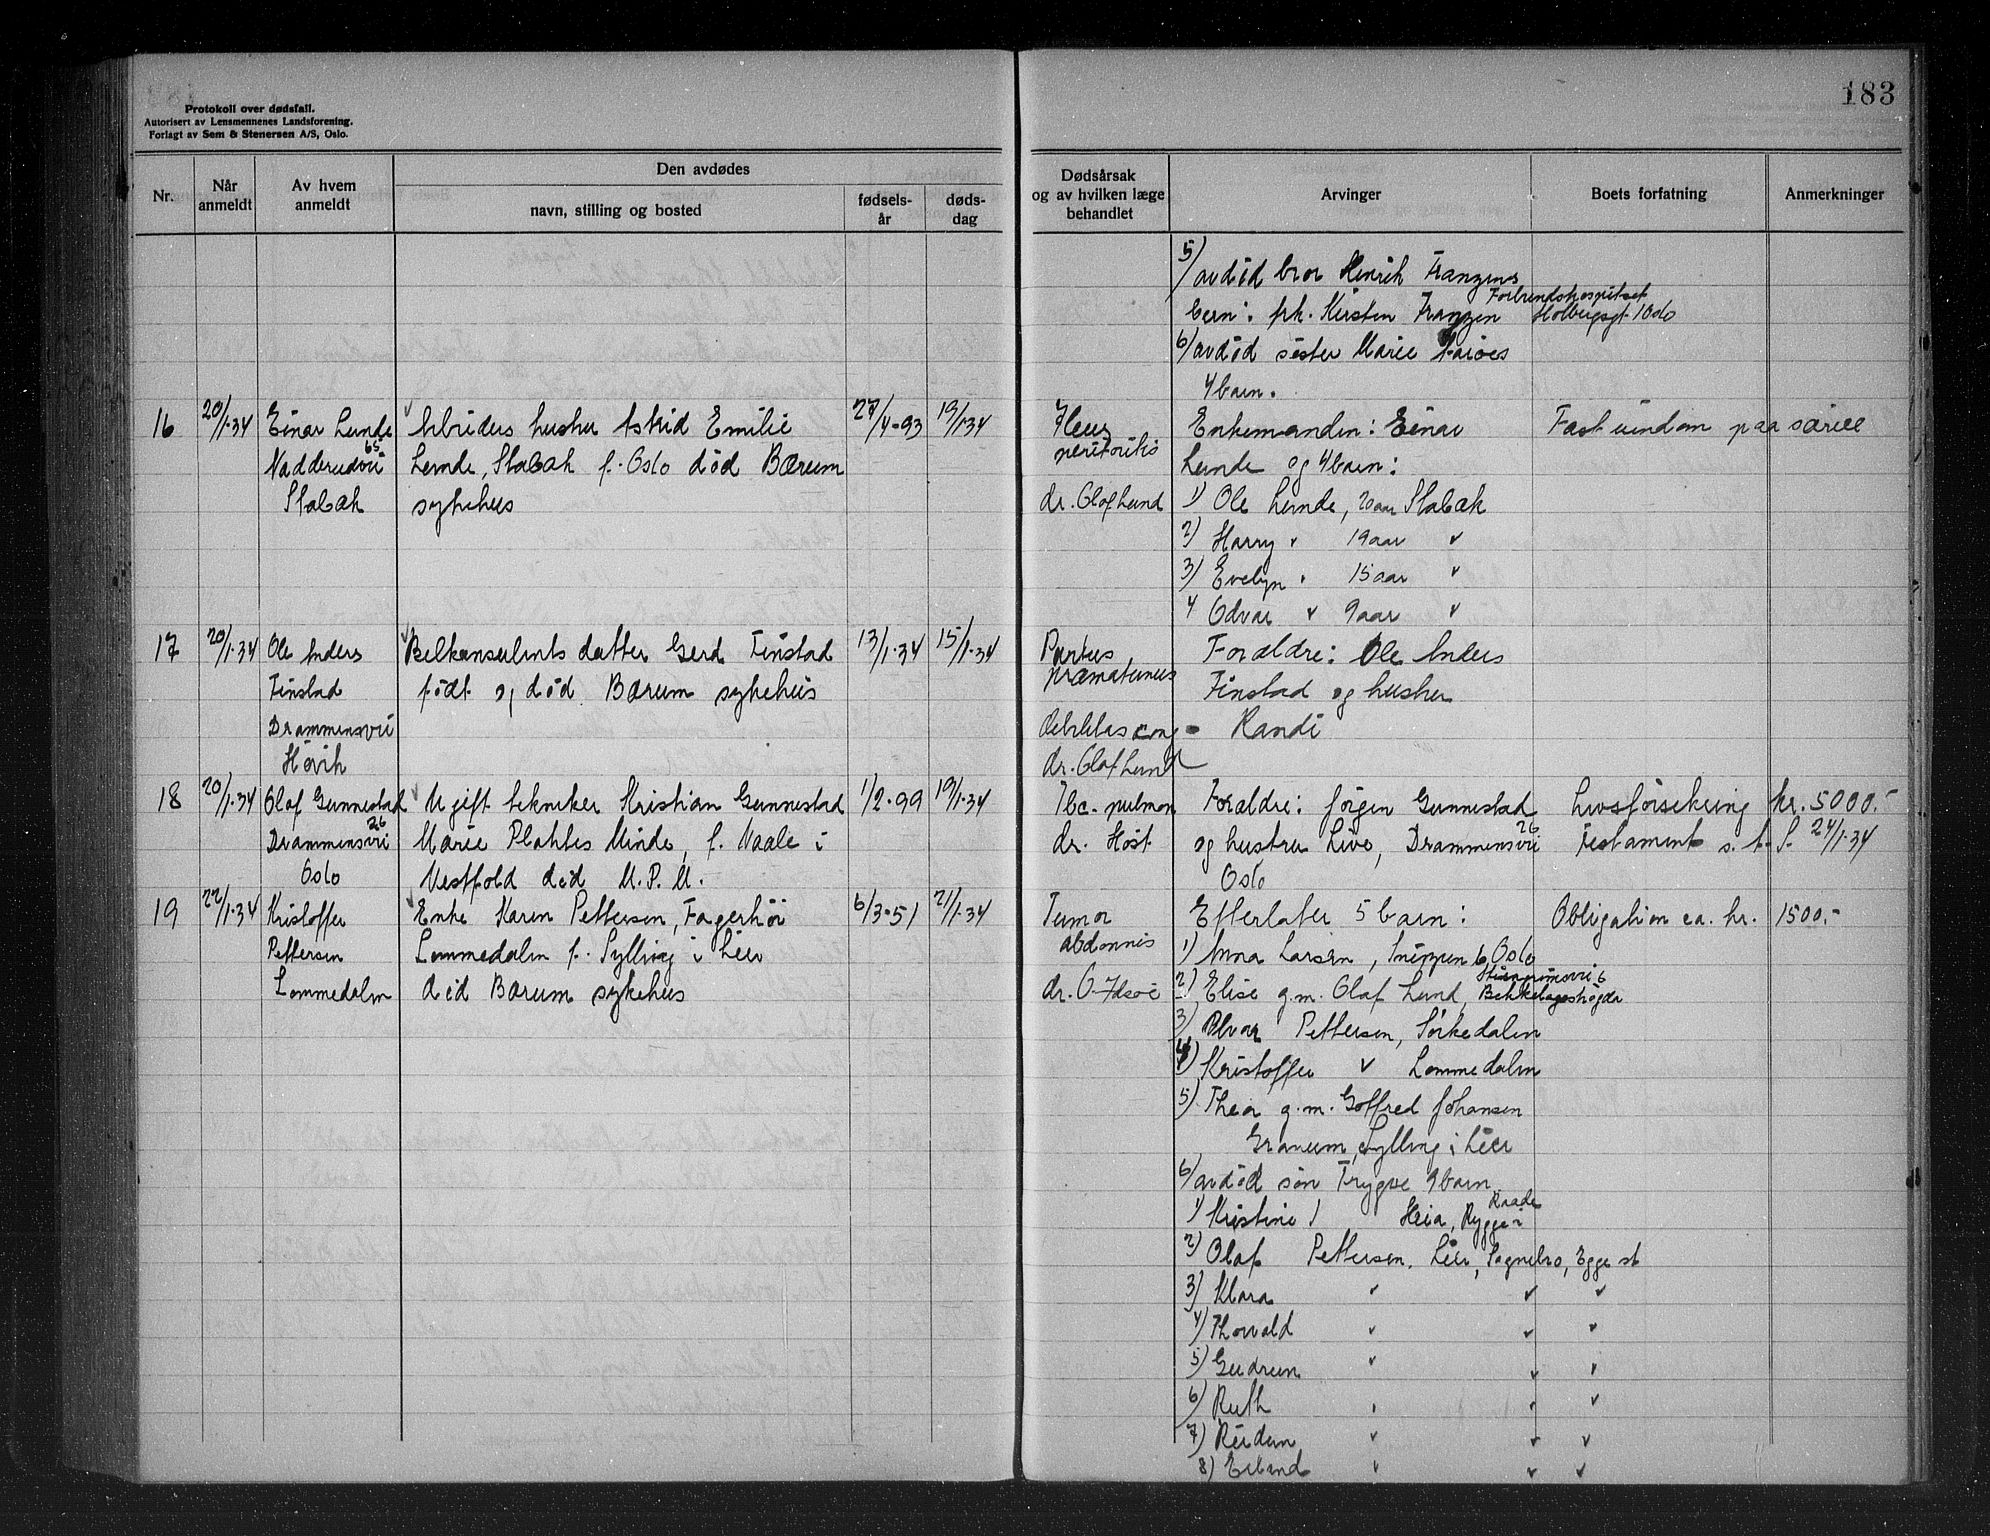 Protokoll over dødsfall.
Autorisert av Lensmennenes Landsforening.
Forlagt av Sem & Stenersen A/S, Oslo.
183
Nr.
Når anmeldt
Av hvem anmeldt
Den avdødes
navn, stilling og bosted
fødsels-
år
døds-
dag
Dødsårsak
og av hvilken læge
behandlet
Arvinger
Boets forfatning
Anmerkninger
5/
avdød bror Henrik Franzens
barn: frk. Kirsten Franzen Forbundshospitset Holbergsgt. 1 Oslo
6/ avdød søster Marie
4 barn.
16 20/1-34 Einar Lunde Arbeiders hustru Astrid Emilie 27/4-93 19/1-34
Nadderudvei 65 Lunde, Stabæk f. Oslo død Bærum
Stabæk sykehus
Ileus Enkemanden: Einar Fast eiendom paa
peritonitis Lunde og 4 barn:
dr. Olaf Lund 1) Ole Lunde, 20 aar Stabæk
2) Harry " 19 aar "
3) Evelyn " 15 aar "
4 Odvar " 9 aar "
17 20/1-34 Ole Anders datter Gerd Finstad 13/1-34 15/1-34
Finstad født og død Bærum sykehus
Drammensvei
Høvik
Partus Forældre: Ole Anders
præmaturus Finstad og hustru
Debilitas cong - Randi
dr. Olaf Lund
18 20/1-34 Olaf Gunnestad Ugift tekniker Kristian Gunnestad 1/2-99 19/1-34
Drammensvei 26 Marie Plahtes Minde, f. Vaale i
Oslo Vestfold død M.P.M.
Tbc. pulmon Forældre: Jørgen Gunnestad Livsforsikring kr. 5000.-
dr. Høst og hustru Live, Drammensvei 26 Testament s. t. S. 24/1-34
Oslo
19 22/1-34 Kristoffer Enke Karen Pettersen, Fagerhøi 6/3-51 21/1-34
Pettersen Lommedalen f. Sylling i Lier
Lommedalen død Bærum sykehus
Tumor Efterlater 5 barn: Obligation ca. kr. 1500.-
abdomnis 1) Anna Larsen, 6, Oslo
dr. O. Idsøe 2) Elise g.m. Olaf Lund, 6 Bekkelagshøgda
3) Pettersen, Sørkedalen
4) Kristoffer " Lommedalen
5) Thea g.m. Goffred Johansen
Granum, Sylling i Lier
6/ avdød søn Trygve 9 barn
1) Kristine / Heia, Rygge i Raade
2) Olaf Pettersen. Lier, Sognebo, Egge st
3) Klara " " "
4) Thorvald " " "
5) Gudrun " " "
6) Ruth " " "
7) Reidun " " "
8) Erland " " "